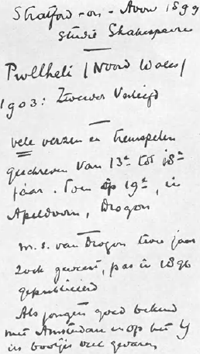 Stratford - on - Avon 1899
Studie Shakespeare
Pwllheli (Noord Wales)
1903: Zwever Verliefd
vele verzen en treurspelen
geschreven van 13e tot 18e
jaar. Toen op 19e, in
Apeldoorn, Dragon
m.s. van Dragon twee jaar
zoek geweest, pas in 1896
gepubliceerd
Als jongen goed bekend
met Amsterdam en op het Y
in bootjes veel gevaren